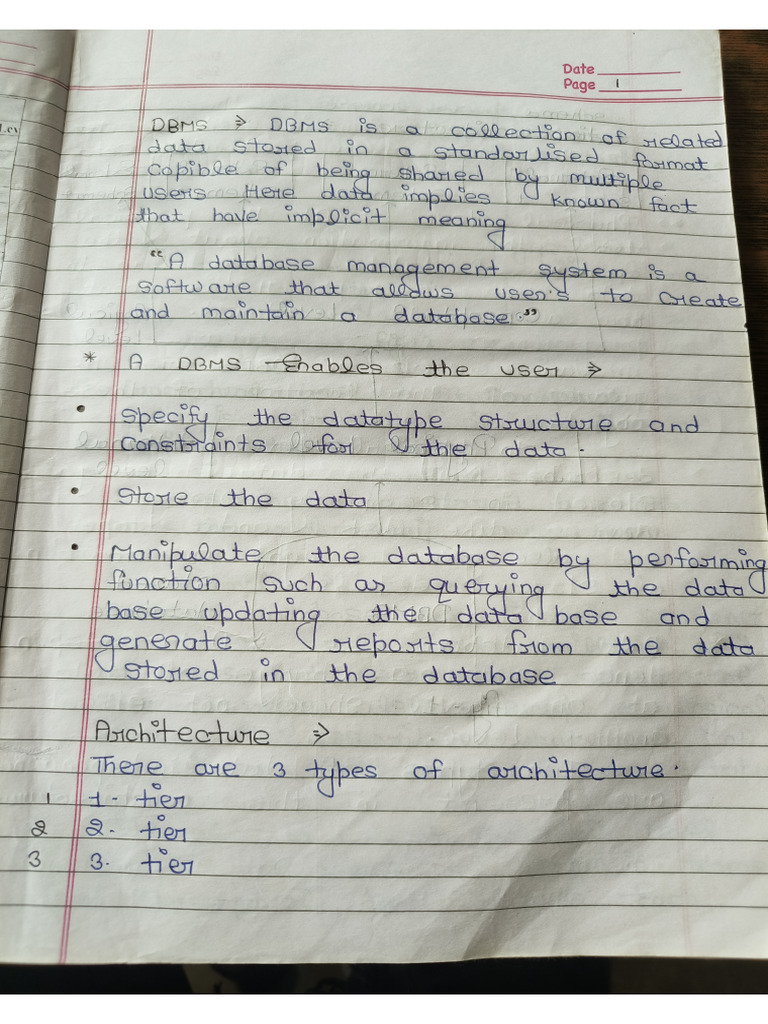 Date
Page 1
DBMS ⇒ DBMS is a collection of related
data stored in a standardised format
Capible of being shared by multiple
users Here data implies known fact
that have implicit meaning
“A database management system is a
Software that allows user's to create
and maintain a database.”
* A DBMS Enables the user ⇒
• Specify the datatype structure and
Constraints for the data.
• Store the data
• Manipulate the database by performing
function such as querying the data
base updating the data base and
generate reports from the data
stored in the database
Architecture ⇒
There are 3 types of architecture.
1 1- tier
2 2- tier
3 3. tier